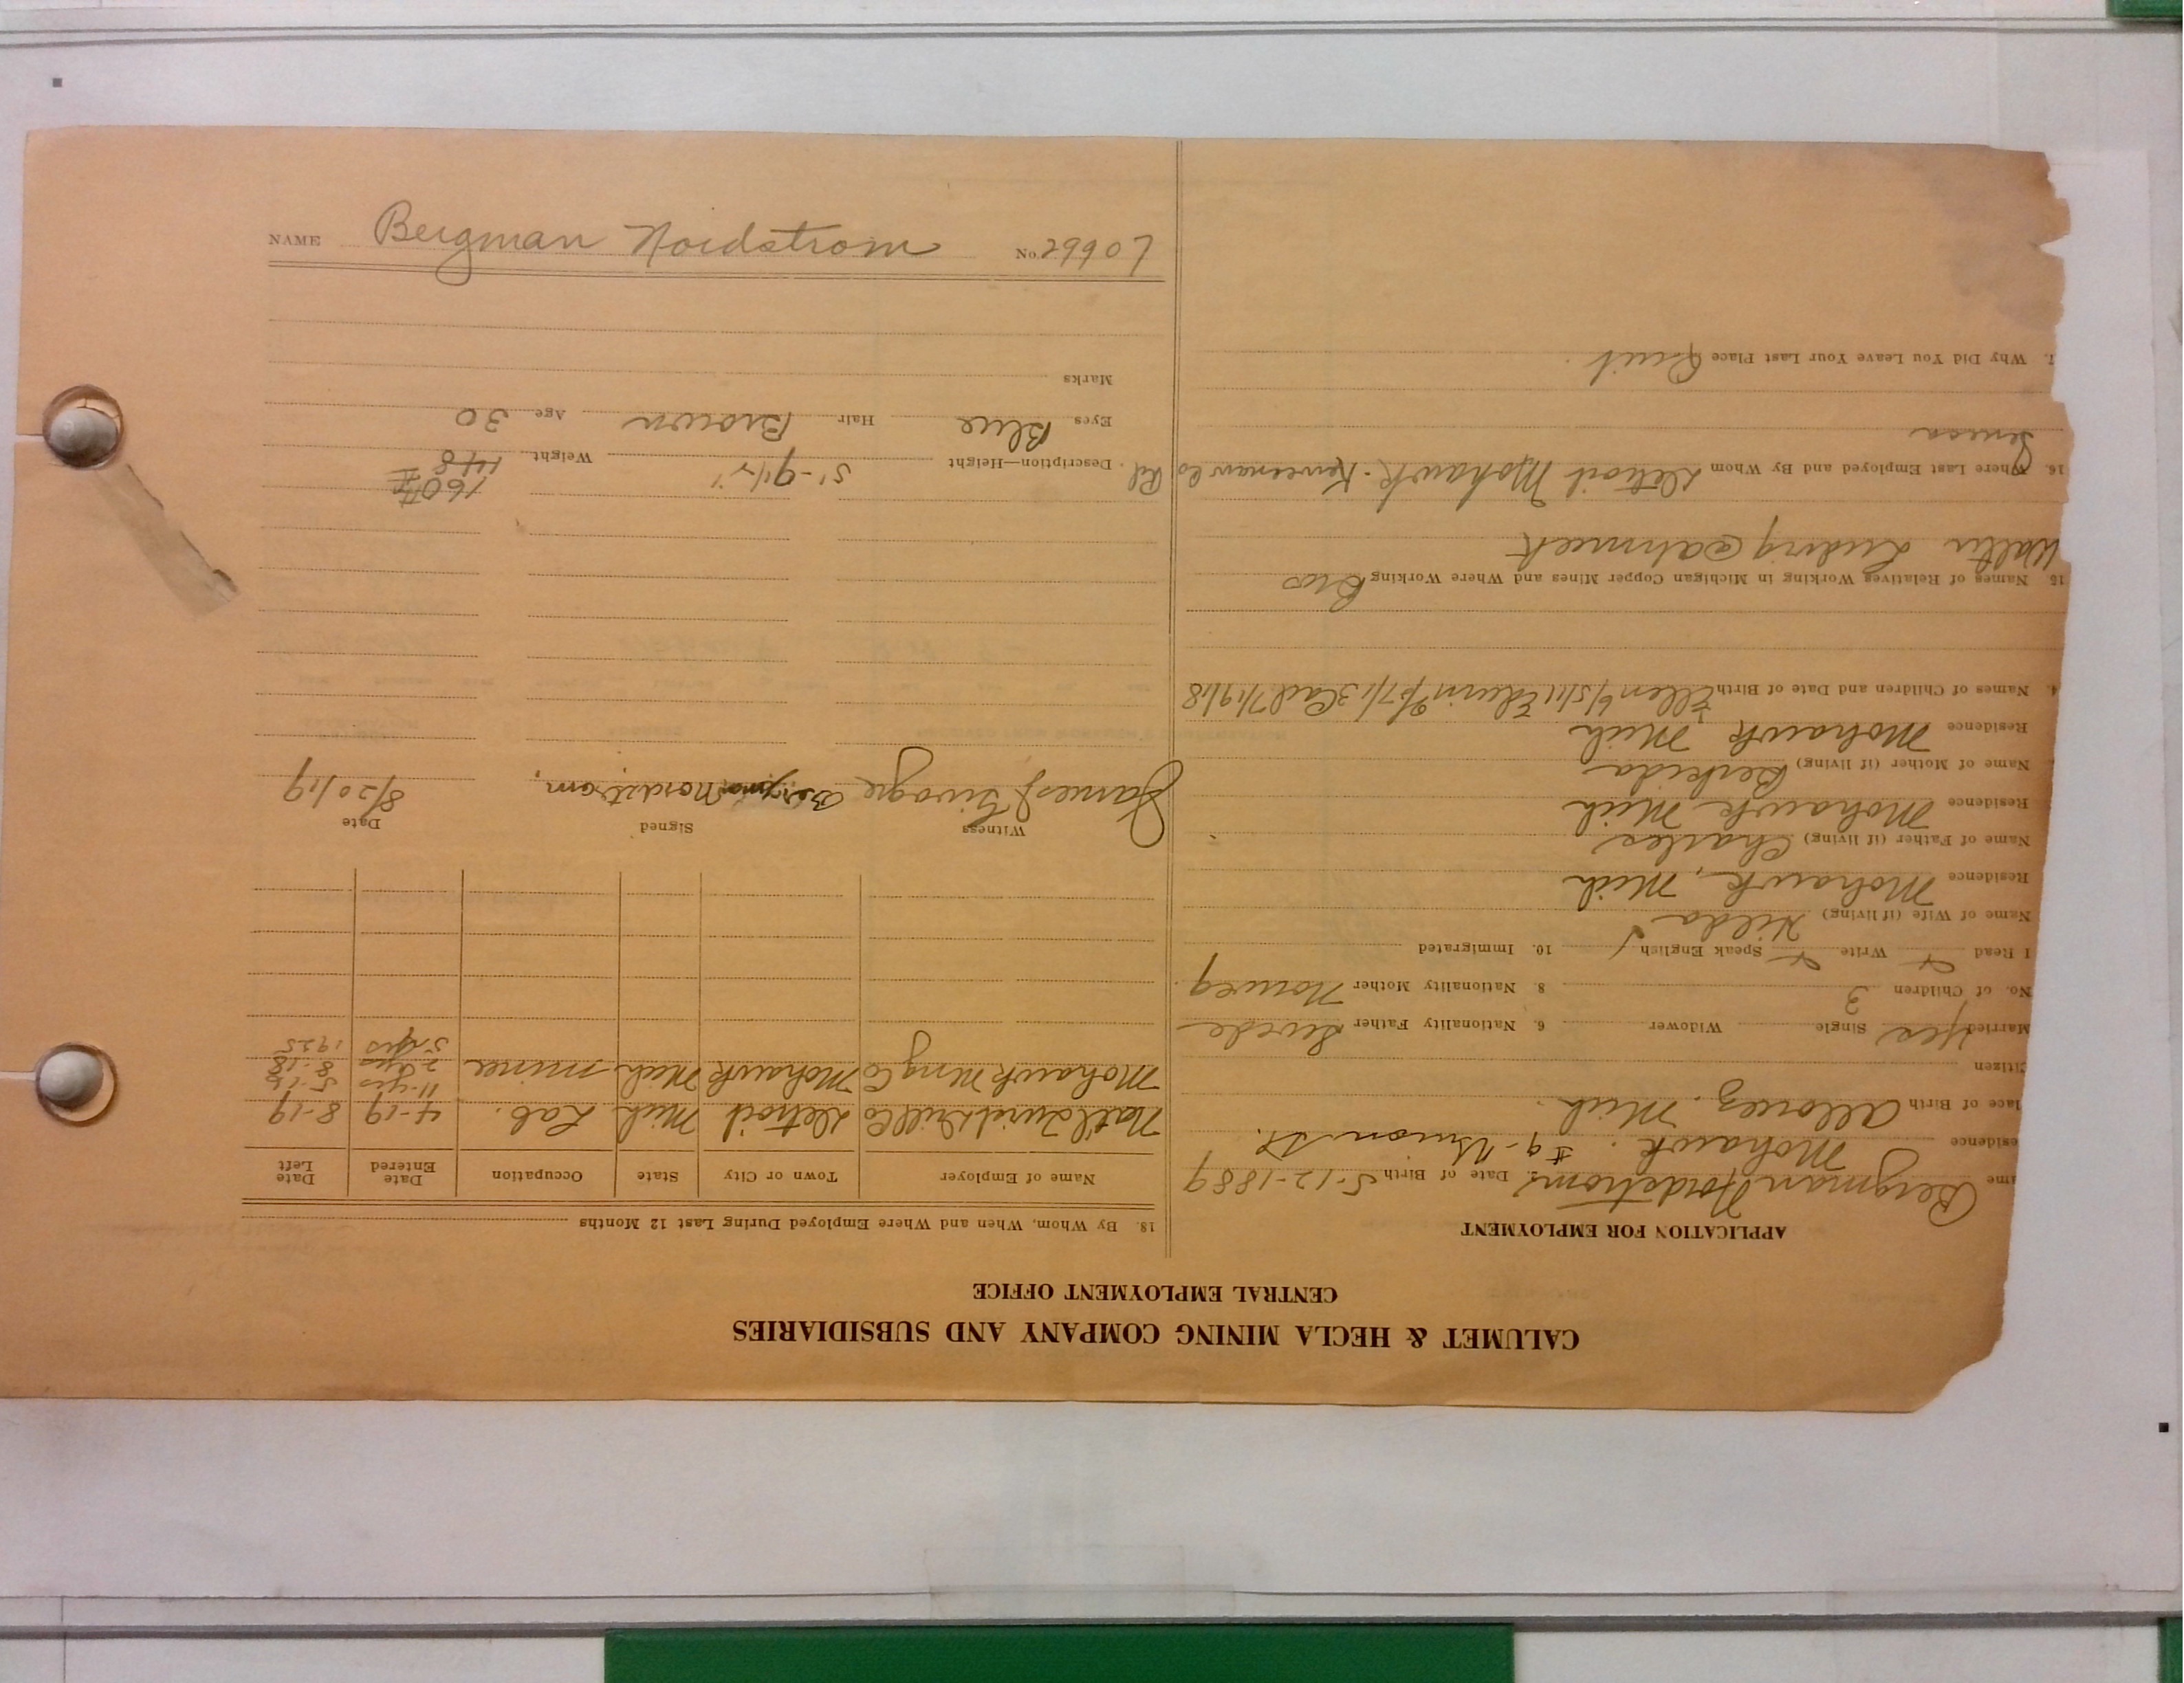 NAME Bergman Nordstrom No. 29907
CALUMET & HECLA MINING COMPANY AND SUBSIDIARIES
CENTRAL EMPLOYMENT OFFICE
APPLICATION FOR EMPLOYMENT
ame Bergman Nordstrom 2. Date of Birth 5-12-1889
esidence Mohawk. #9-Union St.
lace of Birth Allouez. Mich.
Citizen
Married Yes Single Widower 6. Nationality Father Swede
No. of Children 3 8. Nationality Mother Norweg
I Read Write Speak English 10. Immigrated
Name of Wife (if living) Hilda
Residence Mohawk, Mich
Name of Father (if living) Charles
Residence Mohawk Mich
Name of Mother (if living)
Residence Mohawk Mich
4. Names of Children and Date of Birth Ellen 6/5/11 Edwin 9/7/13 Carl 7/19/18
15. Names of Relatives Working in Michigan Copper Mines and Where Working Bros
Walter Ludvig Ahmeek
16. Where Last Employed and By Whom Detroit Mohawk-Keweenaw Co Rd
Seneca
7. Why Did You Leave Your Last Place Quit.
18. By Whom, When and Where Employed During Last 12 Months
Name of Employer Town or City State Occupation Date Entered Date Left
Nat'l Twist Drill Co Detroit Mich Lab. 4-19 8-19
Mohawk Mng Co Mohawk Mich miner 11-yrs 5-18
2 yrs 8-18
5 yrs 1925
Witness Signed Date
James J Bergman Nordstrom, 8/20/19
160#
Description—Height 5'-9 1/2" Weight 148
Eyes Blue Hair Brown Age 30
Marks